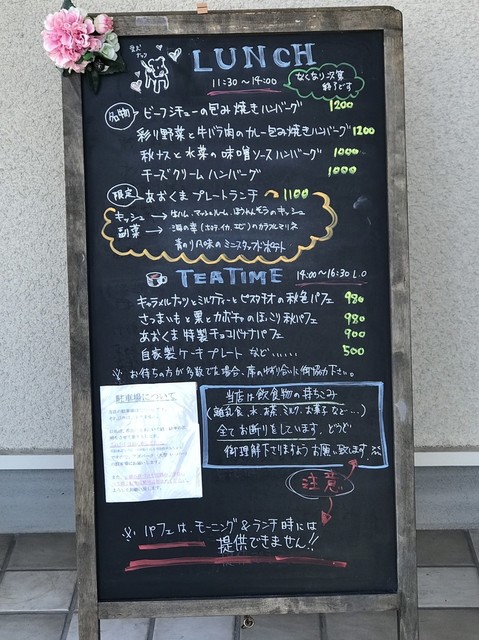 LUNCH
11:30~14:00
なくなり次第
終了です
名物
ビーフシチューの包み焼きハンバーグ 1200
彩り野菜と牛バラ肉のカレー包み焼きハンバーグ 1200
秋ナスと水菜の味噌ソースハンバーグ 1000
チーズクリームハンバーグ 1000
限定 あおくまプレートランチ 1100
キッシュ → 生ハム、マッシュルーム、ほうれんそうのキッシュ
副菜 → 海の幸(ホタテ、イカ、エビ)のカラフルマリネ
青のり風味のミニスタッフドポテト
TEATIME 14:00~16:30 L.O
キャラメルナッツとミルクティーとピスタチオの秋色パフェ 980
さつまいもと栗とカボチャのほっこり秋パフェ 980
あおくま特製チョコバナナパフェ 900
自家製ケーキプレートなど…… 500
※お待ちの方が多数でる場合、席のゆずり合いに御協力下さい。
駐車場について
当店は飲食物の持ちこみ
(離乳食、水、お茶、ミルク、お菓子など…)
全てお断りをしています。どうぞ
御理解下さりますようお願い致します
注意
※パフェは、モーニング&ランチ時には
提供できません!!